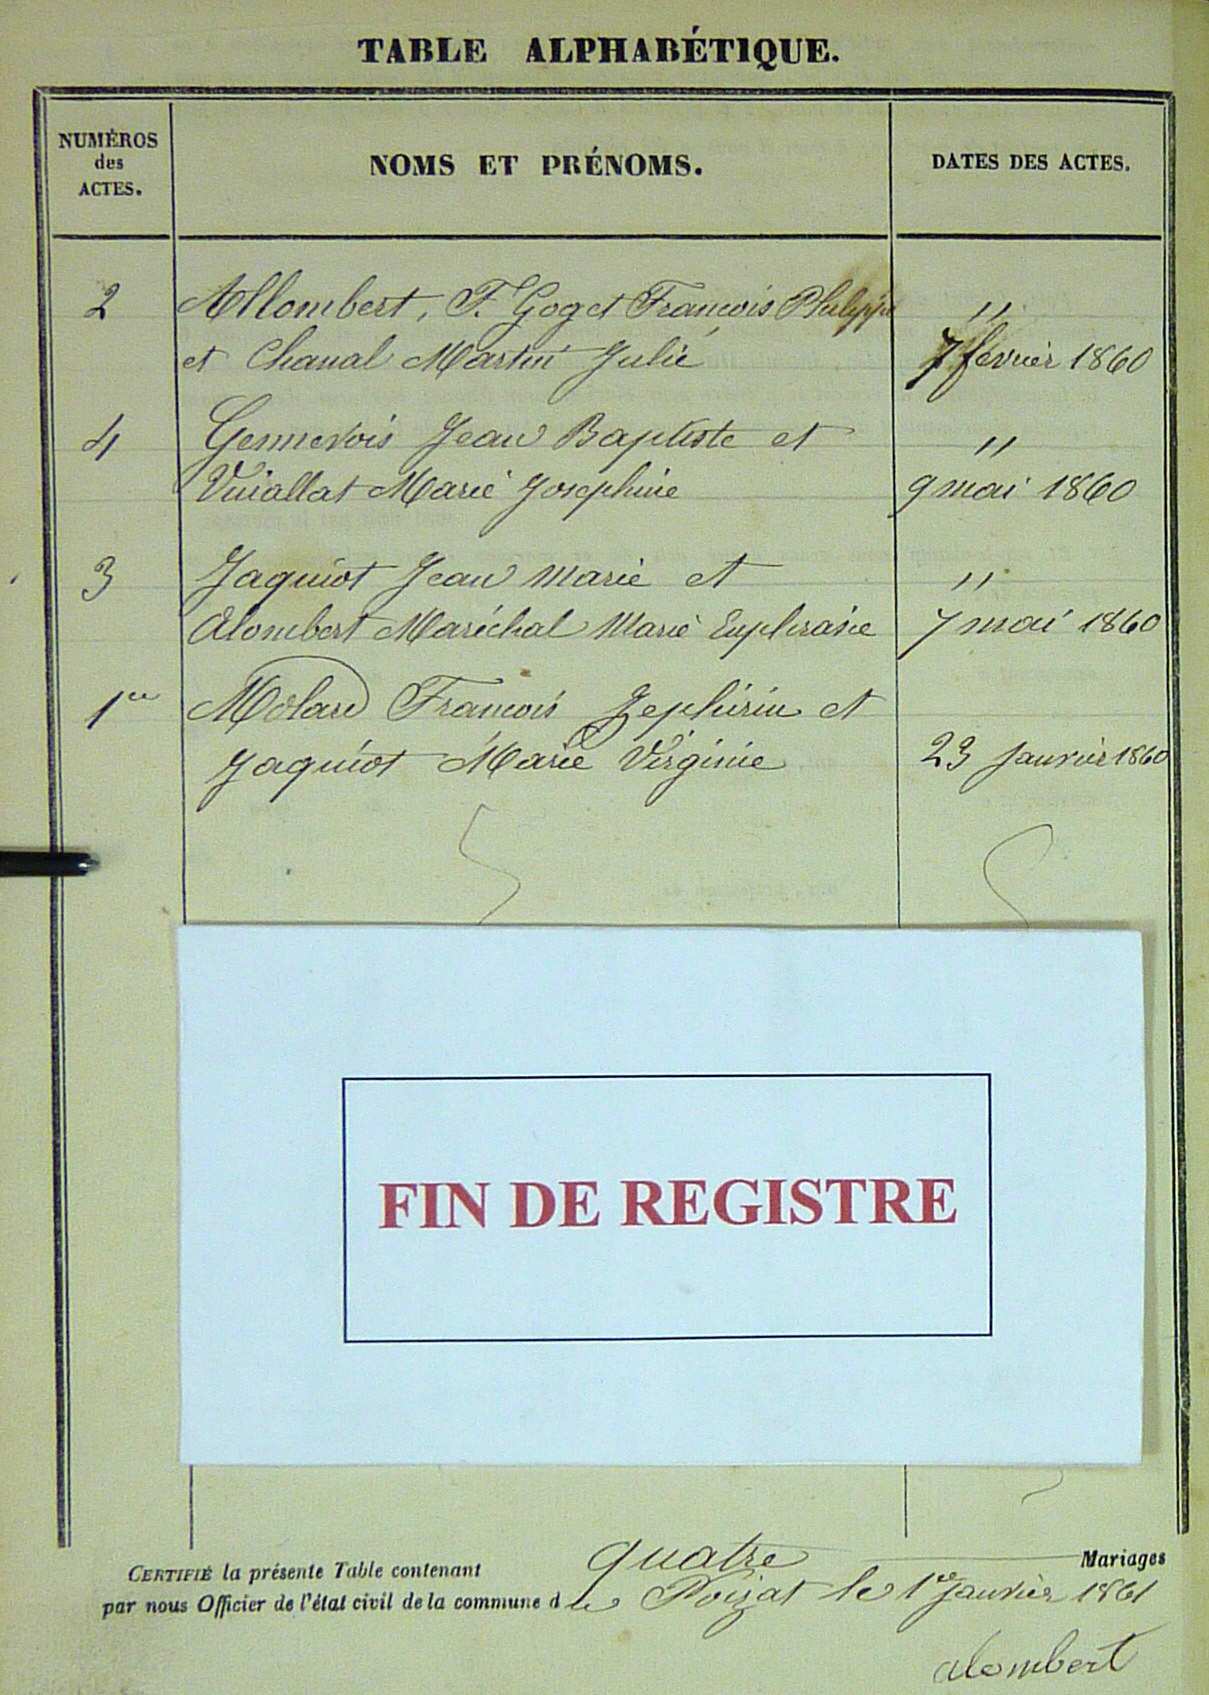 TABLE ALPHABÉTIQUE.
NUMÉROS
des
ACTES.
NOMS ET PRÉNOMS.
DATES DES ACTES.
2 Allombert, F. Goget François Philippe "
et Chanal Martin Julie 7 février 1860
4 Gennevois Jean Baptiste et "
Vuiallat Marie Josephine 9 mai 1860
3 Jaquiot Jean Marie et "
Alombert Maréchal Marie Euphrasie 7 mai 1860
1er Molard François Zephirin et
Jaquiot Marie Virginie 23 Janvier 1860
FIN DE REGISTRE
CERTIFIÉ la présente Table contenant quatre Mariages
par nous Officier de l'état civil de la commune du Poizat le 1er Janvier 1861
Alombert